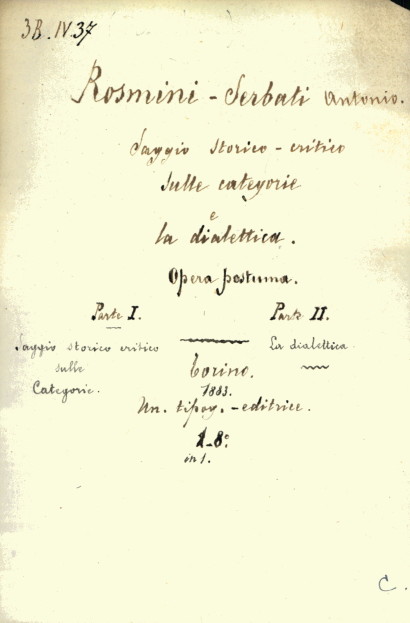 3B.IV.37
Rosmini - Serbati Antonio.
Saggio storico - critico
sulle categorie
e
la dialettica.
Opera postuma.
Parte I.
Parte II.
Saggio storico critico
sulle
Categorie.
La dialettica
Torino.
1883.
Un. tipog. - editrice.
1-8°
in 1.
C.